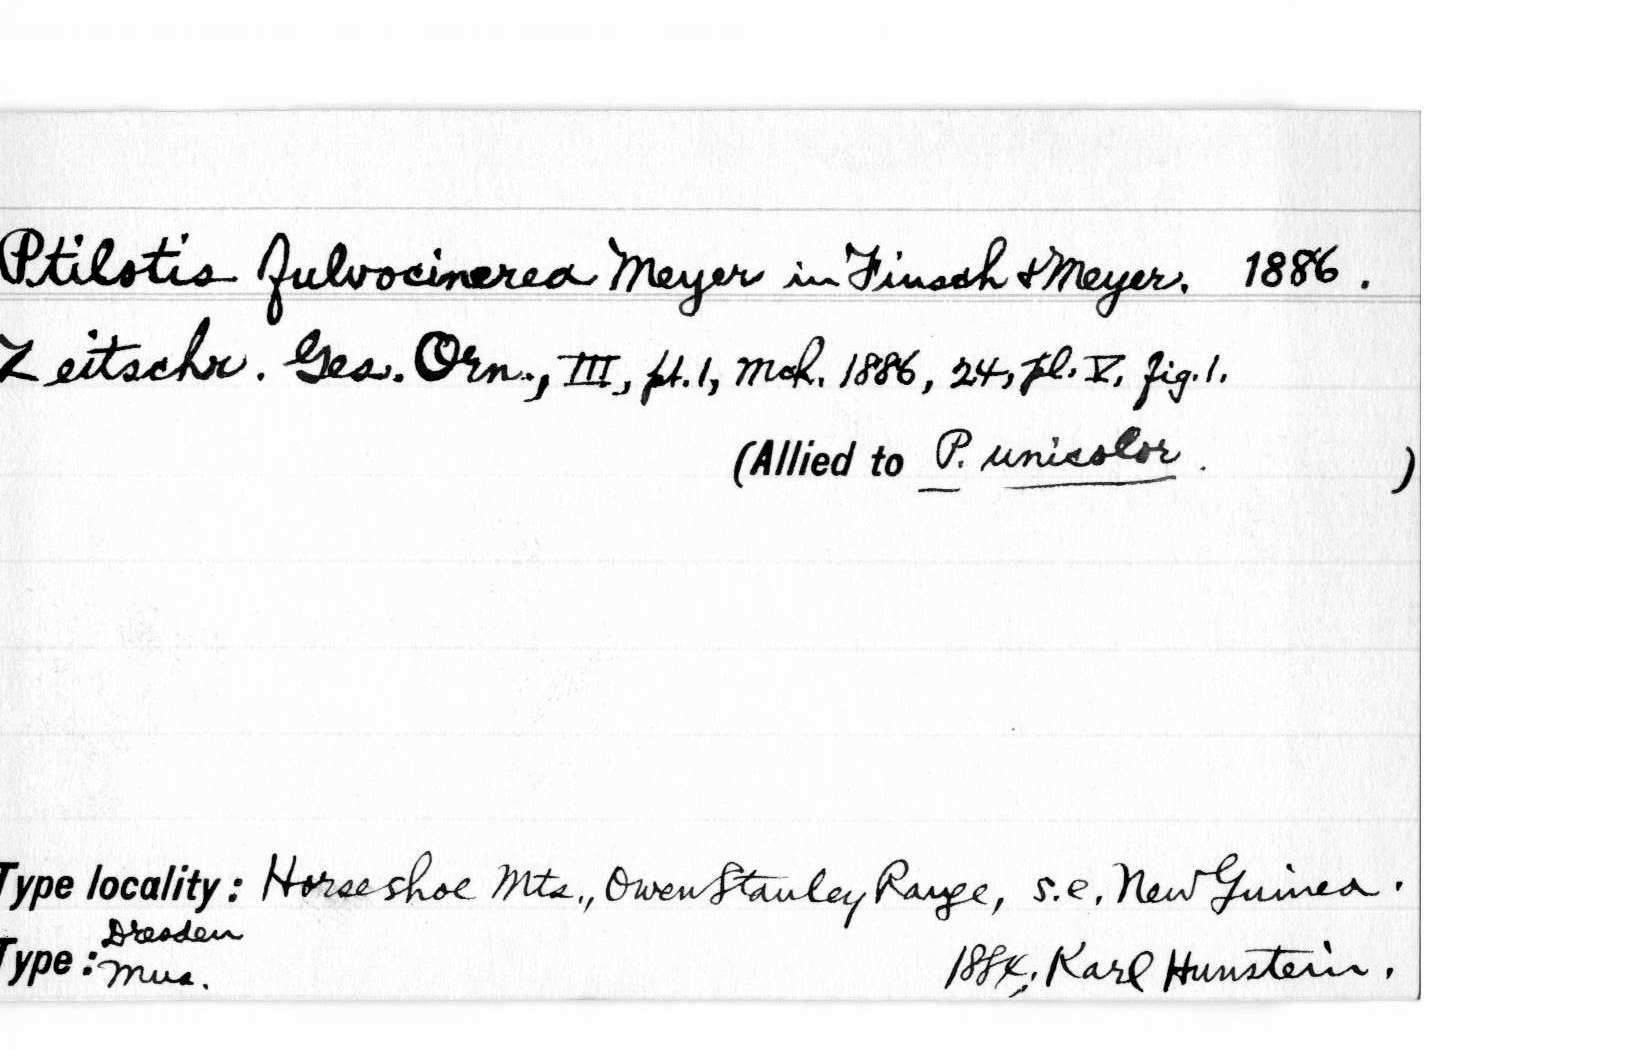 Ptilotis fulvocinerea Meyer in Finsch & Meyer. 1886.
Zeitschr. Ges. Orn., III, pt. 1, Mch. 1886, 24, pl. V, fig. 1.
(Allied to P. unicolor. )
Type locality: Horseshoe Mts., Owen Stanley Range, s.e. New Guinea.
Type: Dresden Mus. 1884; Karl Hunstein.